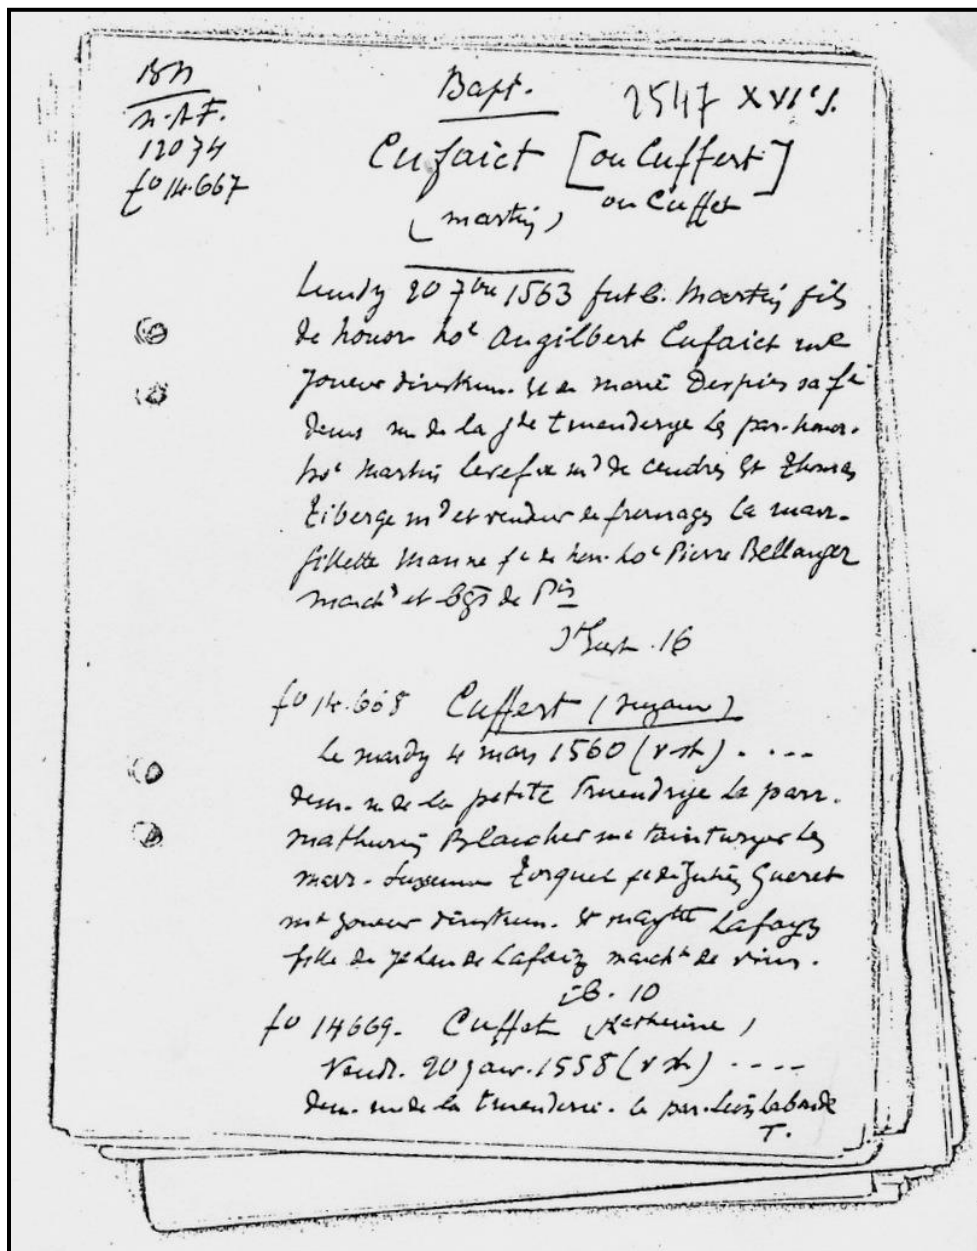 BN
n.A.F.
12074
fo 14.667
Bapt. 2547 XVIe s.
Cufaict [ou Cuffert]
ou Cuffet
(martin)
Lundy 20 7bre 1563 fut b. Martin fils
de honor. hoe Angilbert Cufaict me
joueur dinstrum. et de marie Despies sa fe
dems r. de la gde truenderye Les par. honor.
hoe Martin md de cendres Et Thomas
Tiberge md et vendeur de fromages La marr.
fillette Marine fe de hon. hoe Pierre Bellanger
marchd et bgs de Pis
St Eust. 16
fo 14.668 Cuffert (suzanne)
Le mardy 4 mars 1560 (v st) . ...
dem. r. de la petite Truendrye La parr.
mathurin Blancher me tainturyer Les
marr. Suzanne fe de Julien Gueret
me joueur dinstrum. Et Lafaiz
fille de Jehan de Lafaiz marcht de vins.
ib. 10
fo 14669. Cuffet (Katherine)
Vendr. 20 janv. 1558 (v st) ....
dem. rue de la truenderie. Le par. Laborde
T.